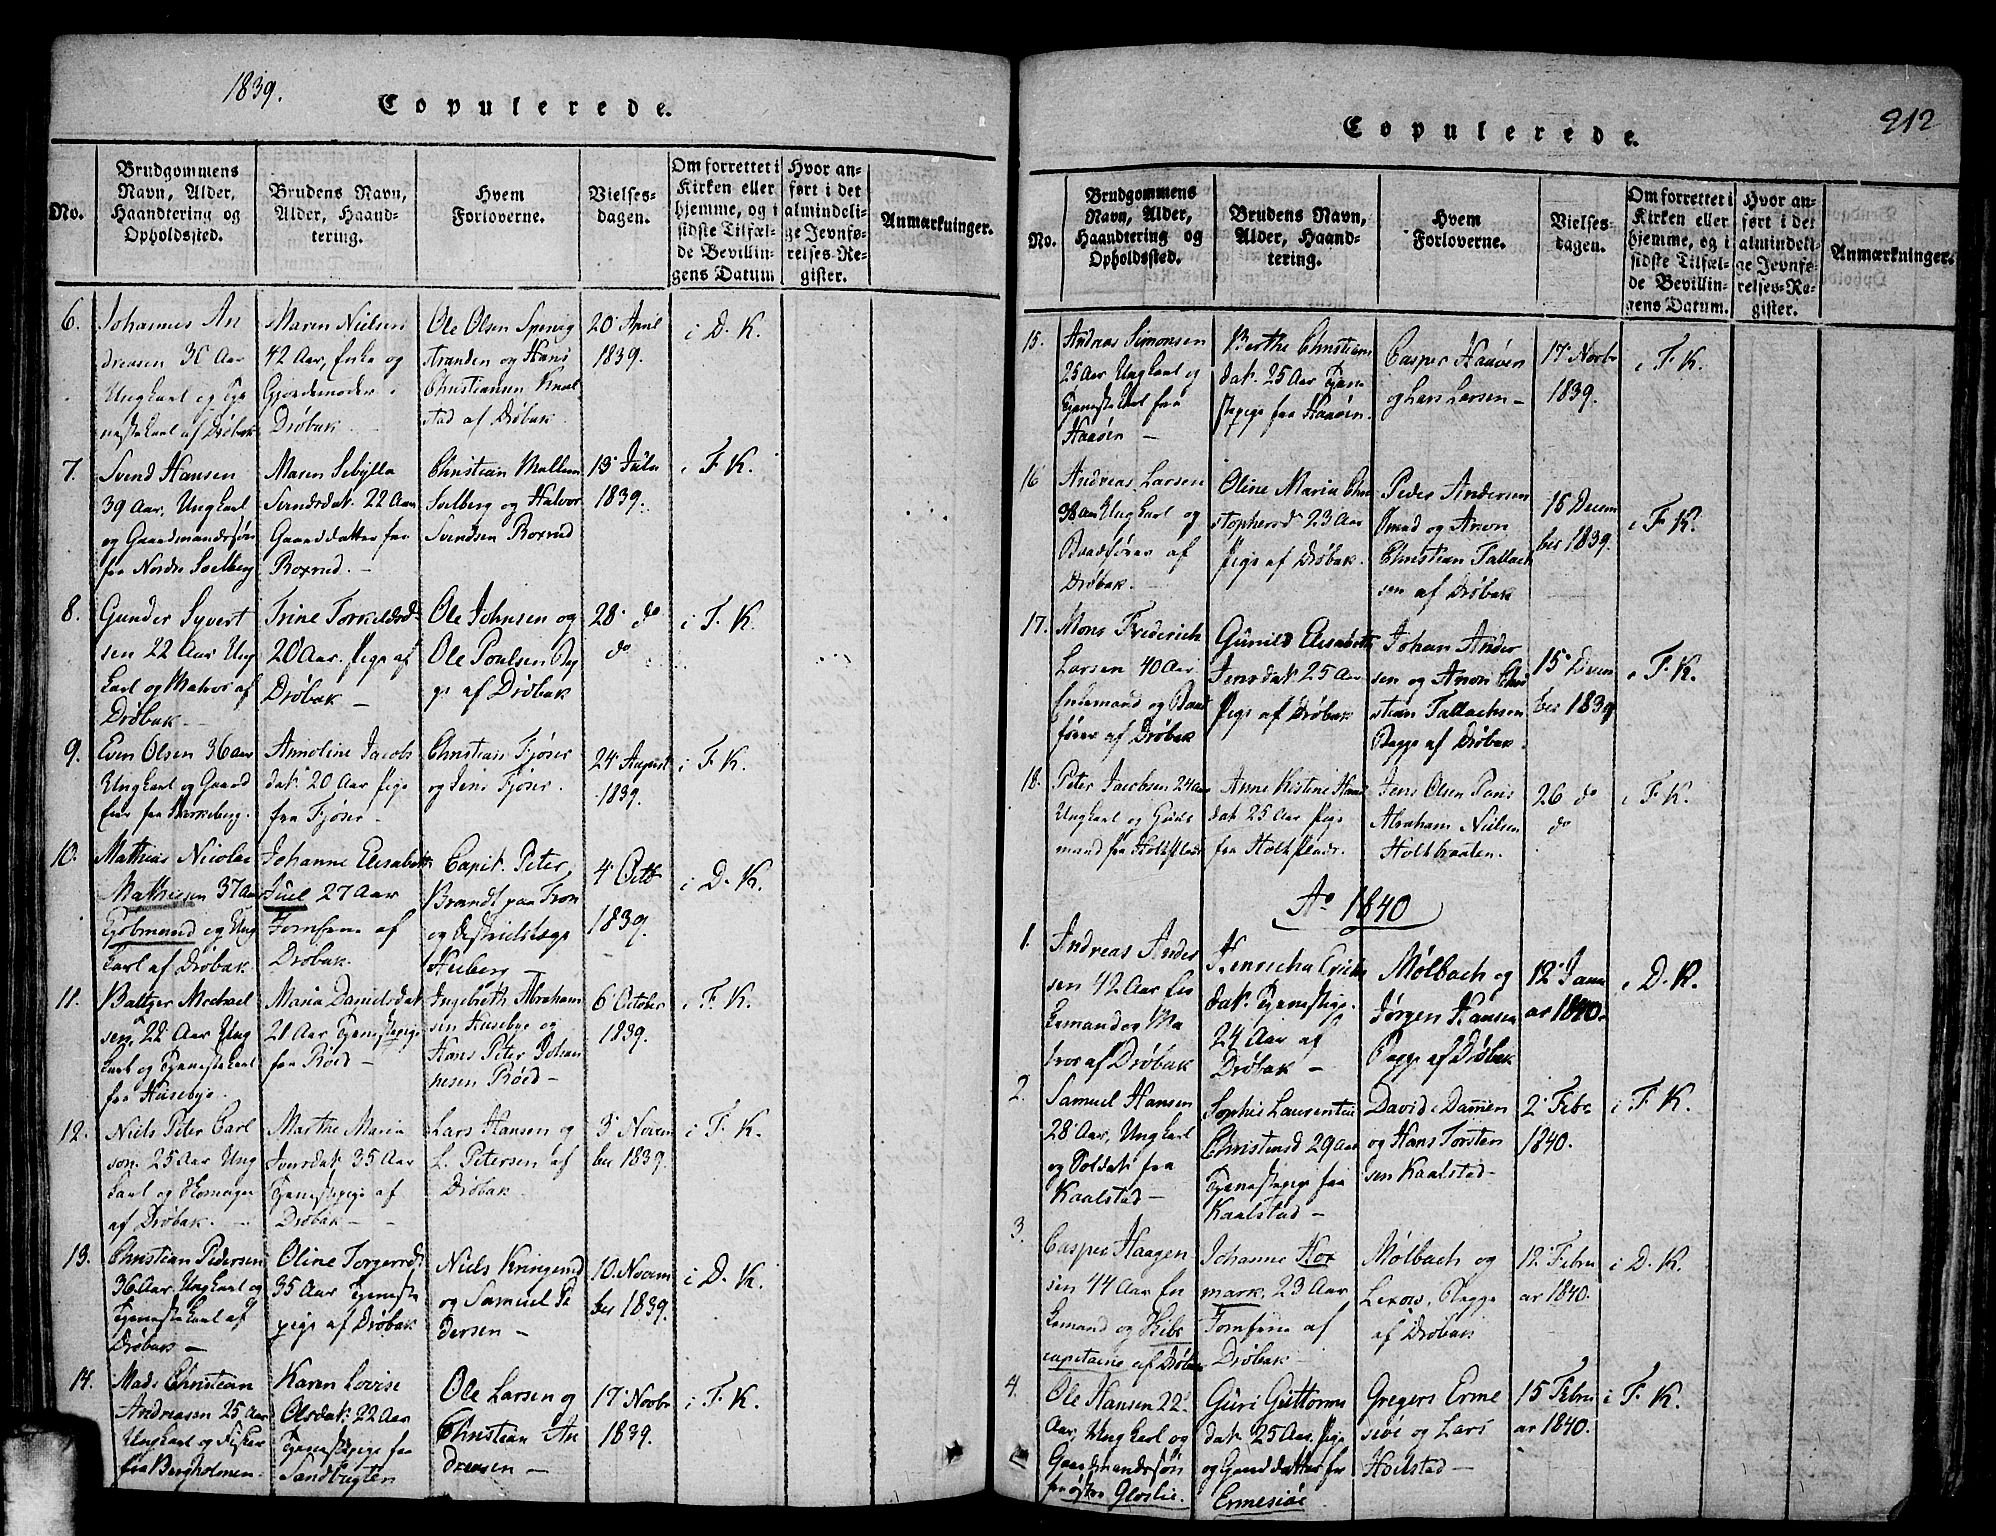 1839.
Copulerede.
No.
Brudgommens
Navn, Alder,
Haandtering og
Opholdssted.
Brudens Navn,
Alder, Haand-
tering.
Hvem
Forloverne.
Vielses-
dagen.
Om forrettet i
Kirken eller
hjemme, og i
sidste Tilfæl-
de Bevillin-
gens Datum
Hvor an-
ført i det
almindeli-
ge Jevnfø-
relses-Re-
gister.
Anmærkninger.
6.
Johannes An
dreasen 30 Aar
Ungkarl og Tje
nestekarl af Drøbak
Maren Nielsen
42 Aar, Enke og
Gjordemoder i
Drøbak
Ole Olsen
stranden og Hans
Christiansen
stad af Drøbak
20 April
1839.
i D. K.
7.
Svend Hansen
39 Aar, Ungkarl
og Gaardmandssøn
fra Nordre Solberg
Maren Sibylla
Svendsdat. 22 Aar
Gaarddatter fra
Roxrud. -
Christian
Solberg og Halvor
Svendsen Roxrud
13 Juli
1839.
i F. K.
8.
Gunder Syvert
sen 22 Aar Ung
karl og Matros af
Drøbak. -
Trine Torkeldsd.
20 Aar. Pige af
Drøbak -
Ole Johnsen og
Ole Poulsen Byg
ge af Drøbak
28 do
do
i F. K.
9.
Even Olsen 36 Aar
Ungkarl og Gaard
eier fra
Annoline Jacobs
dat. 20 Aar Pige
fra Fjøser -
Christian Fjøser
og Jens Fjøser.
24 August
1839.
i F. K.
10.
Mathias Nicolai
Mathiesen 37 Aar
Kjøbmand og Ung
karl af Drøbak.
Johanne Elisabeth
Juul 27 Aar
Jomfrue af
Drøbak.
Capit. Peter
Brandt paa Tron
og Distriktslæge
Heiberg -
4 Octb
1839.
i D. K.
11.
Baltzer Michael
sen, 22 Aar Ung
karl og Tjenestekarl
fra Husebye.
Maria Danielsdat.
21 Aar Tjenestepige
fra Røed -
Ingebreth Abraham
sen Husebye og
Hans Peter Johan
nesen Røed -
6 October
1839.
i F. K.
12.
Niels Peter Carl
son. 25 Aar Ung
karl og Skomager
af Drøbak. -
Marthe Maria
Iversdat. 35 Aar
Tjenestepige af
Drøbak -
Lars Hansen og
L. Petersen af
Drøbak.
3 Novem
ber 1839.
i F. K.
13.
Christian Pedersen
36 Aar. Ungkarl og
Tjenestekarl af
Drøbak -
Oline Torgersdt
35 Aar Tjeneste
pige af Drøbak
Niels Kringerud
og Samuel Pe
dersen -
10. Novem
ber 1839.
i D. K.
14.
Mads Christian
Andreasen 25 Aar
Ungkarl og Fisker
fra Bergholmen -
Karen Lovise
Olsdat. 22 Aar
Tjenestepige fra
Sandbugten
Ole Larsen og
Christian An
dreasen -
17 Novbr
1839.
i F. K.
Copulerede.
212
No.
Brudgommens
Navn, Alder,
Haandtering og
Opholdssted.
Brudens Navn,
Alder, Haand-
tering.
Hvem
Forloverne.
Vielses-
dagen.
Om forrettet i
Kirken eller
hjemme, og i
sidste Tilfæl-
de Bevillin-
gens Datum.
Hvor an-
ført i det
almindeli-
ge Jevnfø-
relses-Re-
gister.
Anmærkninger.
15.
Andreas Simonsen
25 Aar Ungkarl og
Tjenestekarl fra
Haaøen -
Berthe Christians
dat. 25 Aar Tjene
stepige fra Haaøen.
Casper Haaøen
og Lars Larsen -
17 Novbr
1839.
i F. K.
16
Andreas Larsen
38 Aar Ungkarl og
Baadfører af
Drøbak.
Oline Maria Chri
stophersd. 23 Aar
Pige af Drøbak.
Peder Andersen
og Aron
Christian Tallach
sen af Drøbak
15 Decem
ber 1839.
i F. K.
17.
Mons Frederich
Larsen 40 Aar
Enkemand og Baad
fører af Drøbak
Gunild Elisabeth
Jensdat. 25 Aar
Pige af Drøbak
Johan Ander
sen og Aron Chri
stian Tallachsen
Begge af Drøbak.
15 Decem
ber 1839
i F. K.
18.
Peter Jacobsen 24 Aar
Ungkarl og Huus
mand fra Holtpladse
Anne Kistine Hans
dat. 25 Aar Pige
fra Holtpladse
Jens Olsen
Abraham Nielsen
Holtbraaten.
26 do
do
i F. K.
Ao 1840
1.
Andreas Ander
sen 42 Aar En
kemand og Ma
tros af Drøbak
Henricha Erichs
dat. Tjenestepige.
24 Aar af
Drøbak -
Mølbach og
Jørgen Hansen
Begge af Drøbak
12 Janu
ar 1840.
i D. K.
2.
Samuel Hansen
28 Aar, Ungkarl
og Soldat fra
Kaalstad -
Sophie Laurentine
Christensd 29 Aar
Tjenestepige fra
Kaalstad -
David Damen
og Hans Torsten
sen Kaalstad -
2 Febr
1840.
i F. K.
3.
Casper Haagen
sen 44 Aar En
kemand og Skibs
capitaine af Drøbak
Johanne Hox
mark. 23 Aar
Jomfrue af
Drøbak
Mølbach og
Lexow, Begge
af Drøbak
12 Febru
ar 1840.
i D. K.
4.
Ole Hansen 22
Aar, Ungkarl og
Gaardmandssøn
fra østre Gloslie.
Guri Guttorms
dat. 25 Aar. Pige
og Gaarddatter fr
Ermesiøe
Gregers Erme
siøe og Lars
Hoelstad -
15 Febru
ar 1840.
i F. K.